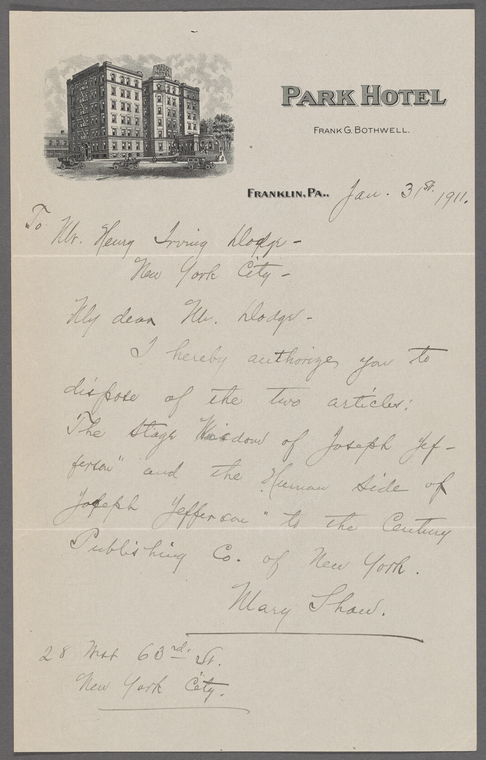 PARK HOTEL
FRANK G. BOTHWELL.
FRANKLIN, PA., Jan. 31st. 1911.
To Mr. Henry Irving Dodge -
New York City -
My dear Mr. Dodge -
I hereby authorize you to
dispose of the two articles:
The Stage Wisdom of Joseph Jef-
ferson" and the "Human Side of
Joseph Jefferson" to the Century
Publishing Co. of New York.
Mary Shaw.
28 West 63rd. St.
New York City.